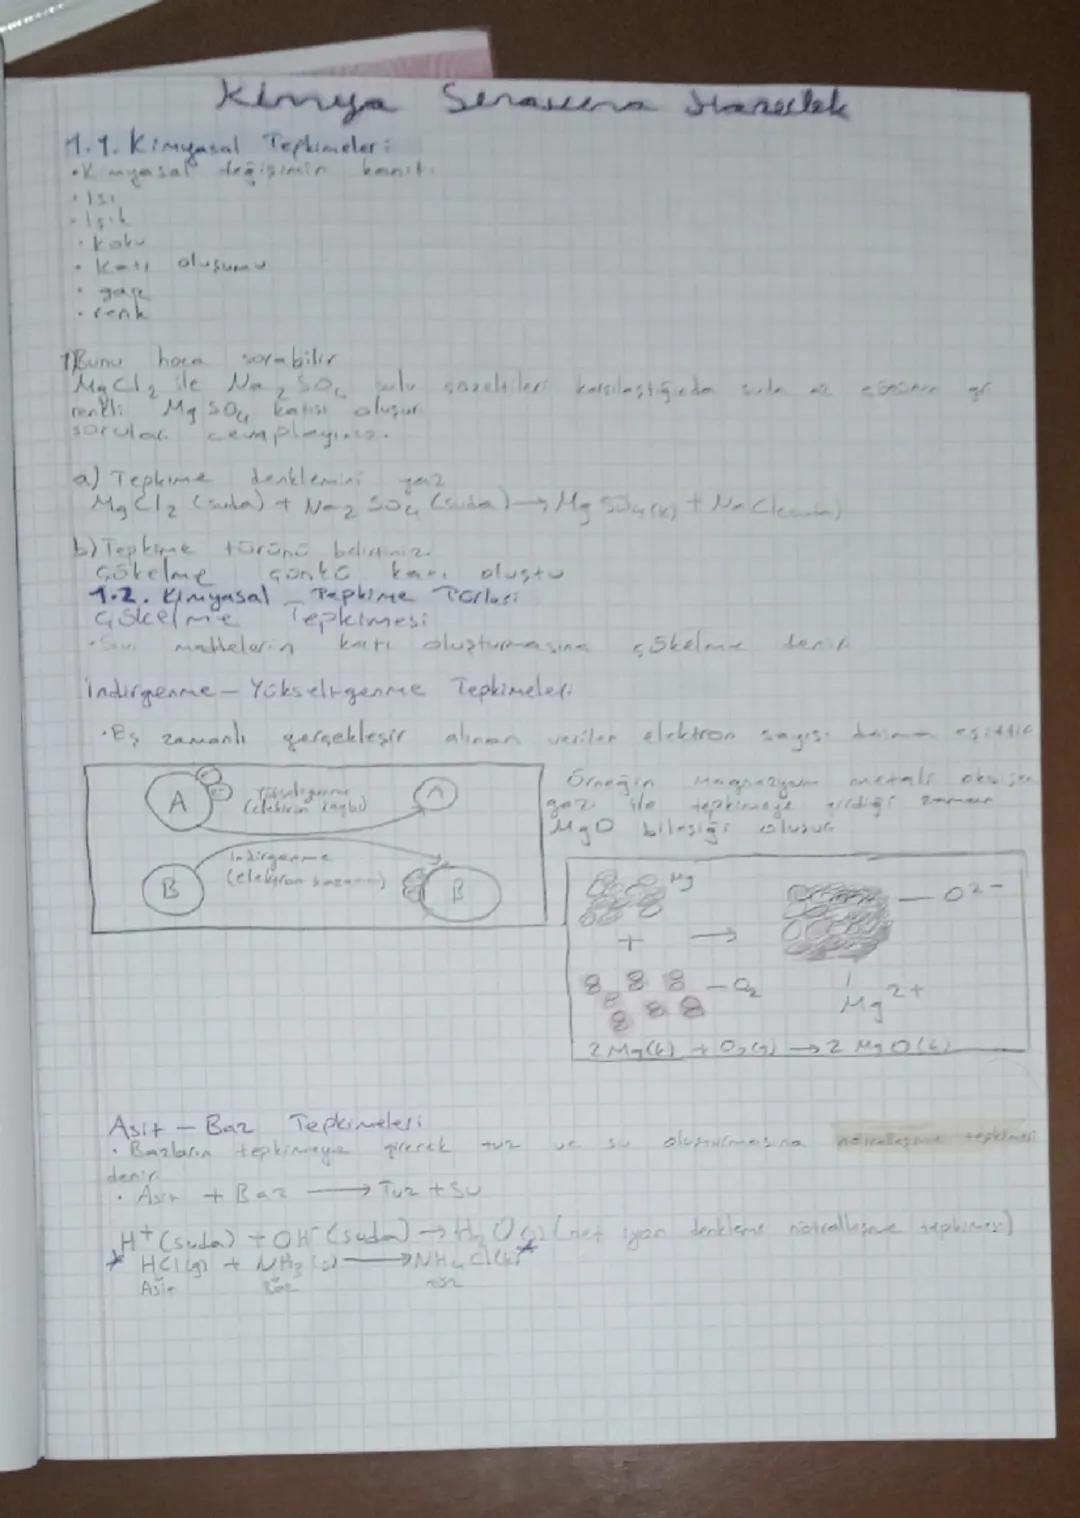 Kimya Sınavına Hazırlık
1.1. Kimyasal Tepkimeler:
• Kimyasal değişimin kanıtı
• Isı
• Işık
• koku
• Katı oluşumu
• gaz
• renk
1) Bunu hoca sorabilir
MgCl2 ile Na2SO4 sulu çözeltileri karşılaştığında suda az çözünen
renkli MgSO4 katısı oluşur
soruları cevaplayınız.
a) Tepkime denklemini yaz
MgCl2 (suda) + Na2SO4 (suda) → MgSO4(k) + NaCl(suda)
b) Tepkime türünü belirtiniz.
Çökelme çünkü katı oluştu
1.2. Kimyasal Tepkime Türleri
Çökelme Tepkimesi
• Sıvı maddelerin katı oluşturmasına çökelme denir
İndirgenme - Yükseltgenme Tepkimeleri
• Eş zamanlı gerçekleşir alınan verilen elektron sayısı daima eşittir
A Yükseltgenme
(elektron kaybı) A
İndirgenme
(elektron kazanımı)
B B
Örneğin magnezyum metali oksijen
gazı ile tepkimeye girdiği zaman
MgO bileşiği oluşur
Mg
+ → O2-
O2
Mg2+
2Mg(k) + O2(g) → 2MgO(k)
Asit - Baz Tepkimeleri
• Bazların tepkimeye girerek tuz ve su oluşturmasına nötralleşme tepkimesi
denir.
• Asit + Baz → Tuz + Su
H+ (suda) + OH- (suda) → H2O(s) (net iyon denklemi nötralleşme tepkimesi)
* HCl(g) + NH3(g) → NH4Cl(k)*
Asit Baz tuz